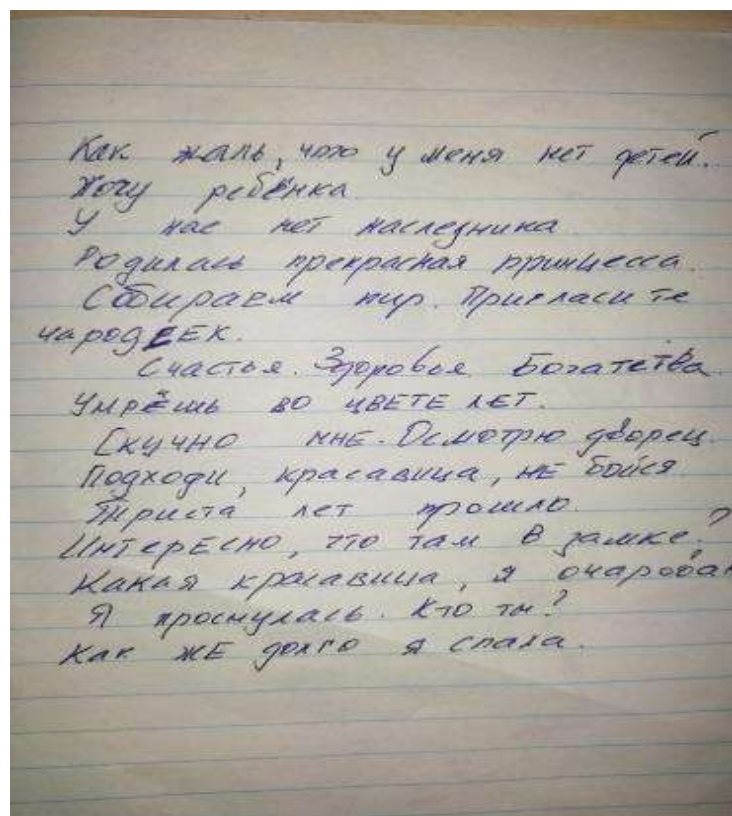 Как жаль, что у меня нет детей.
Хочу ребёнка.
У нас нет наследника.
Родилась прекрасная принцесса.
Собираем пир. Пригласите
чародеек.
Счастья. Здоровья. Богатства.
Умрёшь во цвете лет.
Скучно мне. Осмотрю дворец.
Подходи, красавица, не бойся
Триста лет прошло.
Интересно, что там в замке?
Какая красавица, я очарован
Я проснулась. Кто ты?
Как же долго я спала.